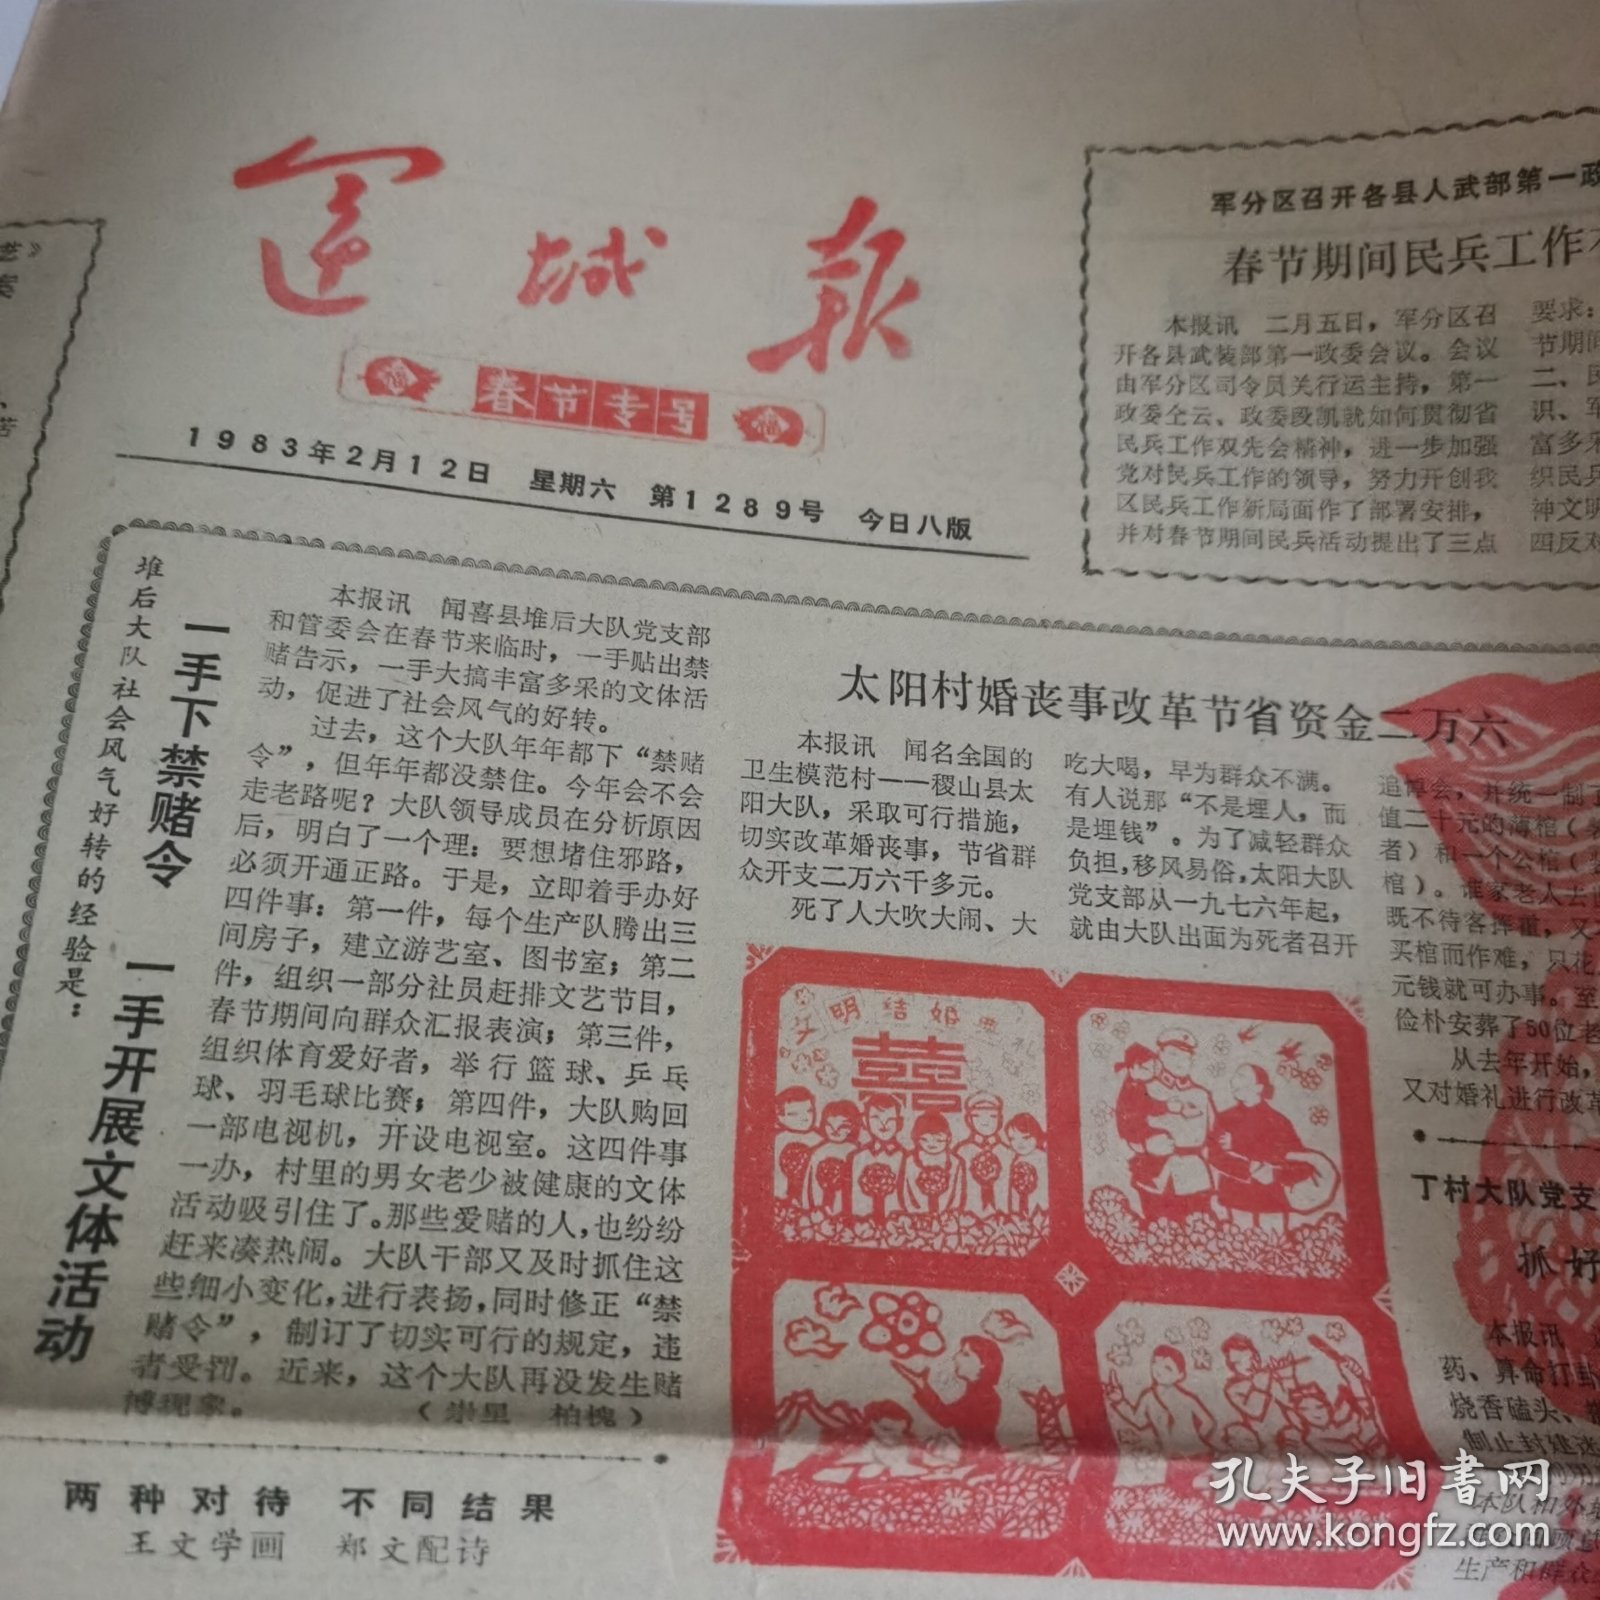 运城报
春节专号
1983年2月12日 星期六 第1289号 今日八版
军分区召开各县人武部第一政
春节期间民兵工作
本报讯 二月五日，军分区召
开各县武装部第一政委会议。会议
由军分区司令员关行运主持，第一
政委仝云、政委段凯就如何贯彻省
民兵工作双先会精神，进一步加强
党对民兵工作的领导，努力开创我
区民兵工作新局面作了部署安排，
并对春节期间民兵活动提出了三点
要求：
节期间
二、民
识、军
富多采
织民兵
神文明
四反对
堆后大队社会风气好转的经验是：
一手下禁赌令 一手开展文体活动
本报讯 闻喜县堆后大队党支部
和管委会在春节来临时，一手贴出禁
赌告示，一手大搞丰富多采的文体活
动，促进了社会风气的好转。
过去，这个大队年年都下“禁赌
令”，但年年都没禁住。今年会不会
走老路呢？大队领导成员在分析原因
后，明白了一个理：要想堵住邪路，
必须开通正路。于是，立即着手办好
四件事：第一件，每个生产队腾出三
间房子，建立游艺室、图书室；第二
件，组织一部分社员赶排文艺节目，
春节期间向群众汇报表演；第三件，
组织体育爱好者，举行篮球、乒乓
球、羽毛球比赛；第四件，大队购回
一部电视机，开设电视室。这四件事
一办，村里的男女老少被健康的文体
活动吸引住了。那些爱赌的人，也纷纷
赶来凑热闹。大队干部又及时抓住这
些细小变化，进行表扬，同时修正“禁
赌令”，制订了切实可行的规定，违
者受罚。近来，这个大队再没发生赌
博现象。 （崇里 柏槐）
太阳村婚丧事改革节省资金二万六
本报讯 闻名全国的
卫生模范村——稷山县太
阳大队，采取可行措施，
切实改革婚丧事，节省群
众开支二万六千多元。
死了人大吹大闹、大
吃大喝，早为群众不满。
有人说那“不是埋人，而
是埋钱”。为了减轻群众
负担，移风易俗，太阳大队
党支部从一九七六年起，
就由大队出面为死者召开
追悼会，并统一制了
值二十元的海棺（
者）和一个公棺（
棺）。谁家老人去世
既不待客挥霍，又
买棺而作难，只花
元钱就可办事。至
俭朴安葬了50位老
从去年开始，
又对婚礼进行改革
文明结婚典礼
囍
丁村大队党支
抓好
本报讯
药、算命打卦
烧香磕头、
制止封建迷
本队和外
生产和群众
两种对待 不同结果
王文学画 郑文配诗
孔夫子旧书网
www.kongfz.com